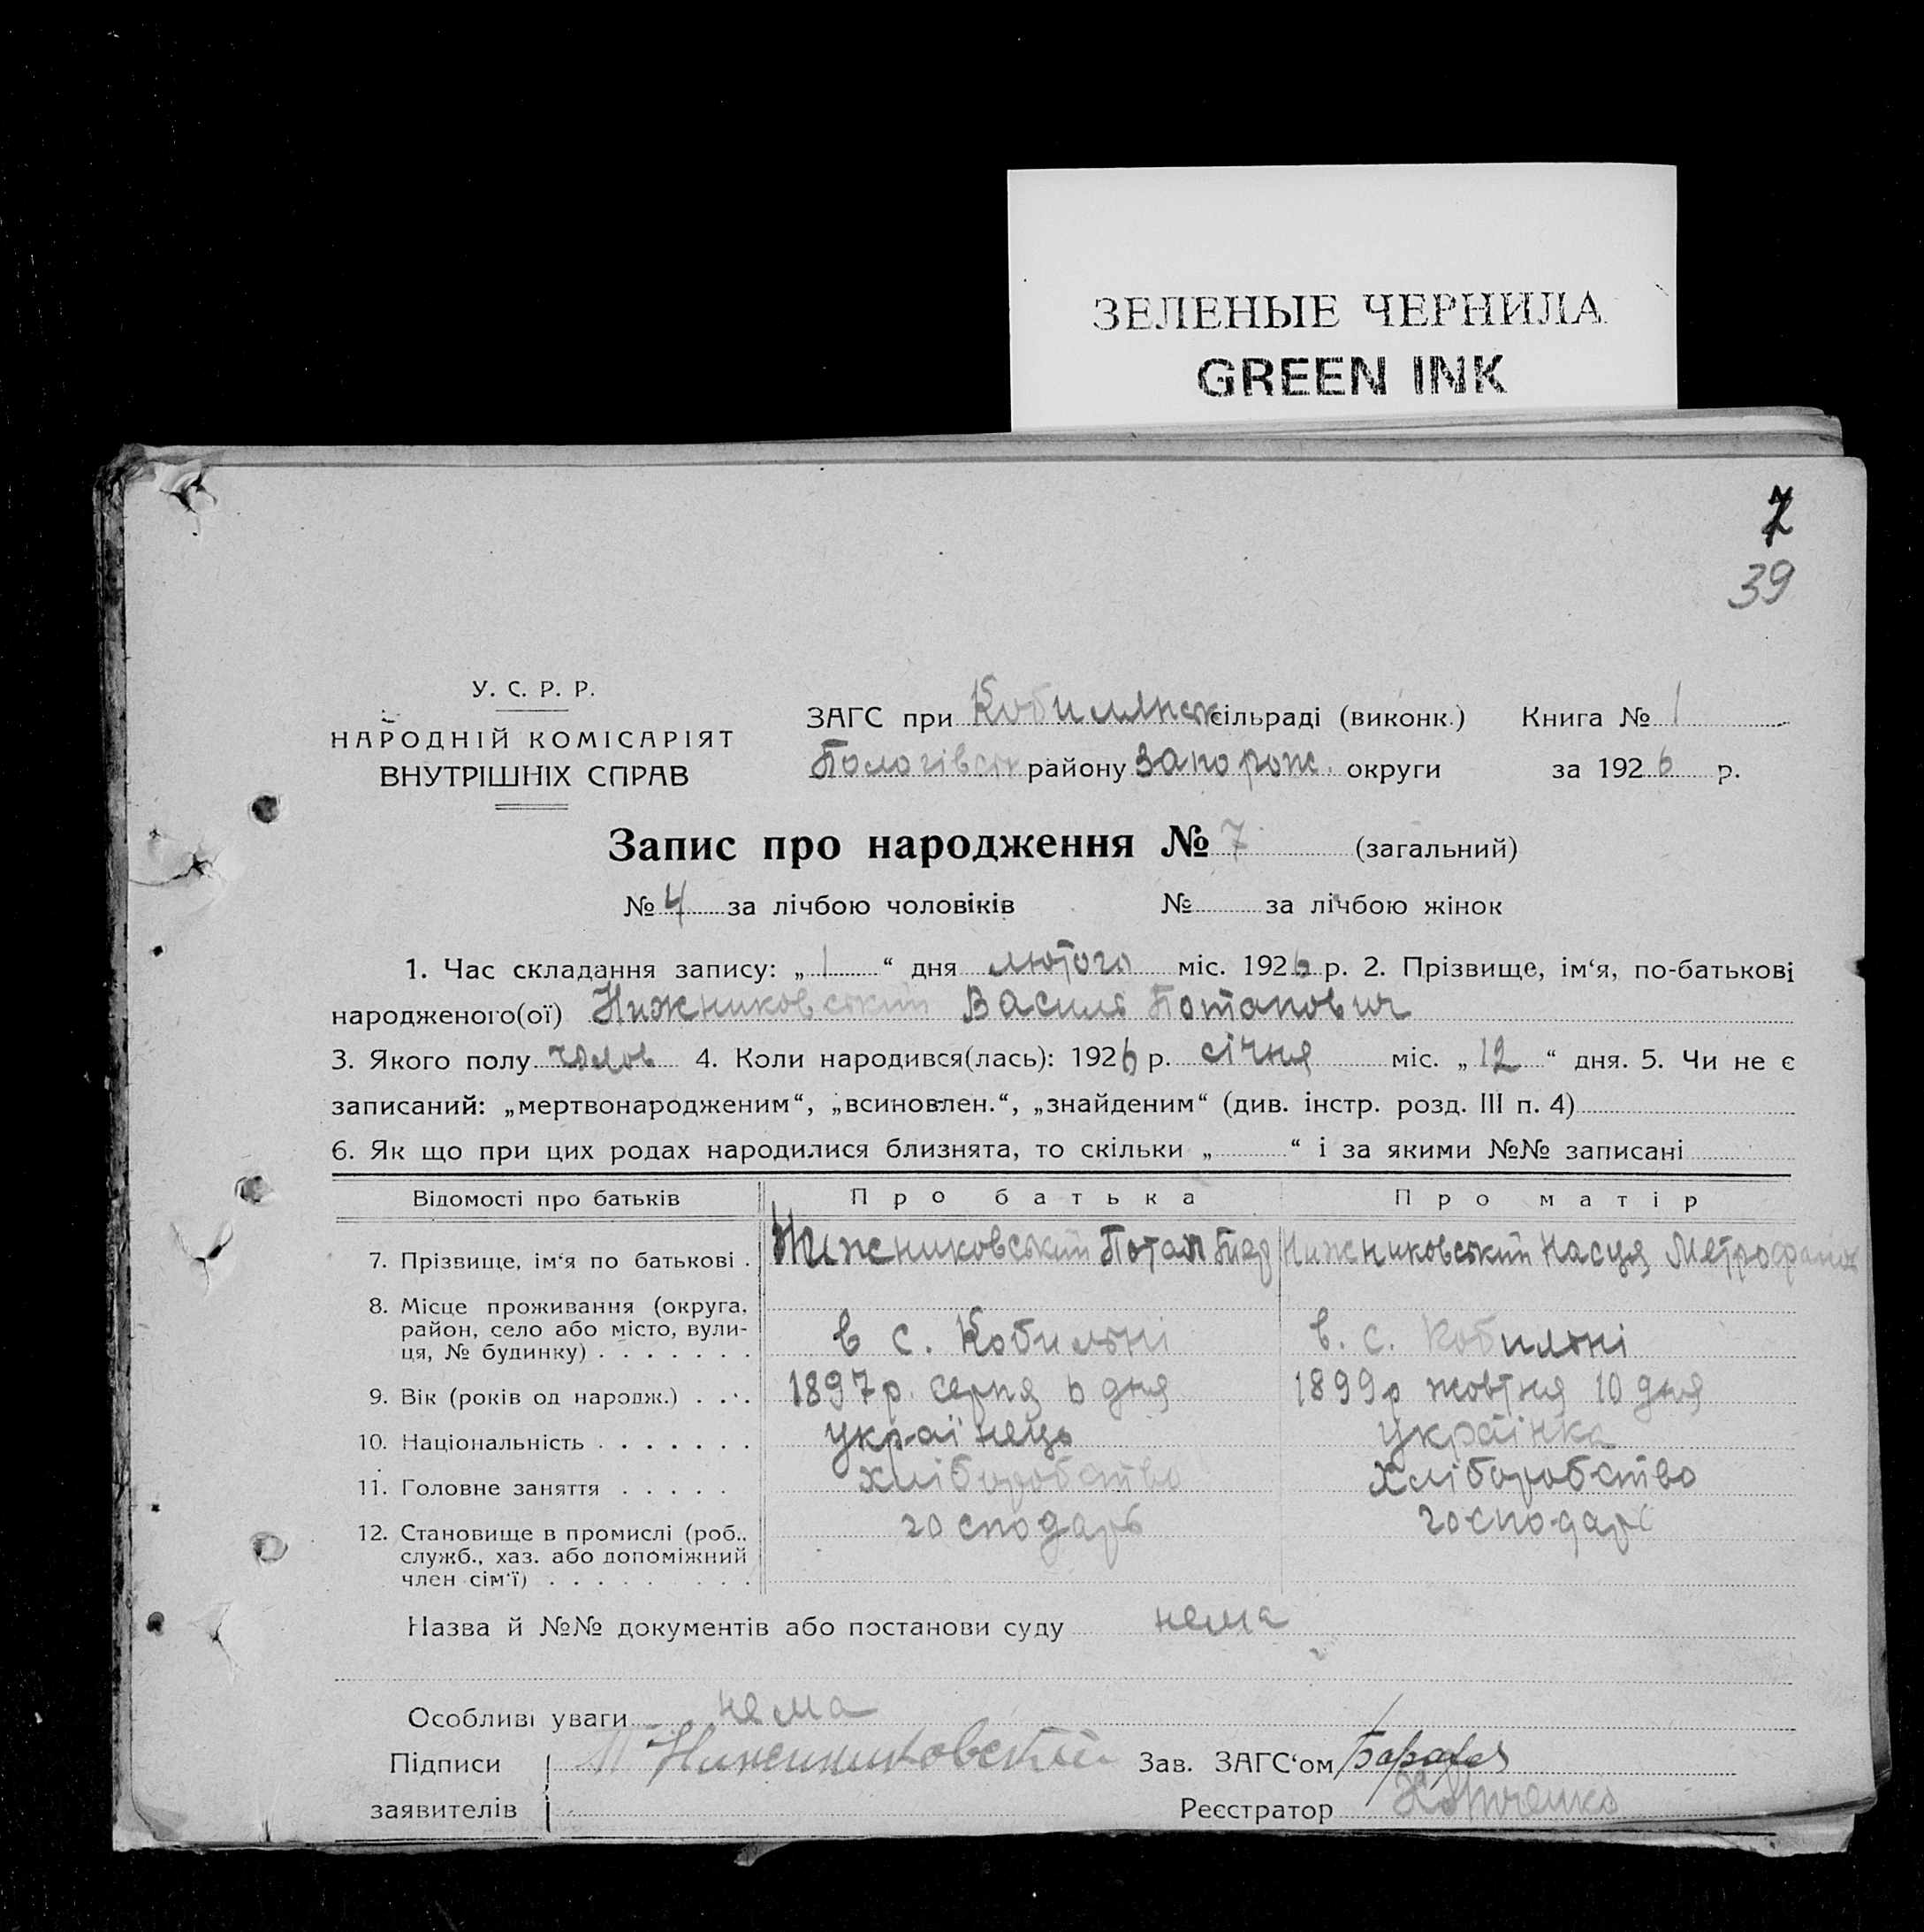 ЗЕЛЕНЫЕ ЧЕРНИЛА
GREEN INK
7
39
У. С. Р. Р.
НАРОДНІЙ КОМІСАРІЯТ
ВНУТРІШНІХ СПРАВ
ЗАГС при Кобилянск сільраді (виконк.) Книга № 1
Пологівськ району Запорож. округи за 1926 р.
Запис про народження № 7 (загальний)
№ 4 за лічбою чоловіків № за лічбою жінок
1. Час складання запису: „1“ дня лютого міс. 1926 р. 2. Прізвище, ім‘я, по-батькові
народженого(ої) Нижниковський Василь Потапович
3. Якого полу чолов 4. Коли народився(лась): 1926 р. січня міс. „12“ дня. 5. Чи не є
записаний: „мертвонародженим“, „всиновлен.“, „знайденим“ (див. інстр. розд. III п. 4)
6. Як що при цих родах народилися близнята, то скільки „ “ і за якими №№ записані
Відомості про батьків Про батька Про матір
7. Прізвище, ім‘я по батькові . Нижниковський Потап Нижниковський Насця Метрофанов
8. Місце проживання (округа,
район, село або місто, вули-
ця, № будинку) . . . . . . . в с. Кобиляні в. с. Кобиляні
9. Вік (років од народж.) . . . 1897 р. серпня 6 дня 1899 р жовтня 10 дня
10. Національність . . . . . . . українець українка
11. Головне заняття . . . . . хліборобство хліборобство
12. Становище в промислі (роб., господарь господарь
служб., хаз. або допоміжний
член сім‘ї) . . . . . . . . .
Назва й №№ документів або постанови суду нема
Особливі уваги нема
Підписи П Нижниковский Зав. ЗАГС‘ом
заявителів Реєстратор